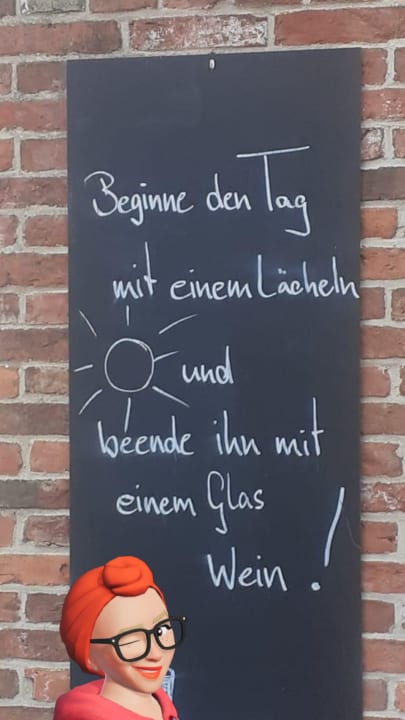 Beginne den Tag
mit einem Lächeln
und
beende ihn mit
einem Glas
Wein !